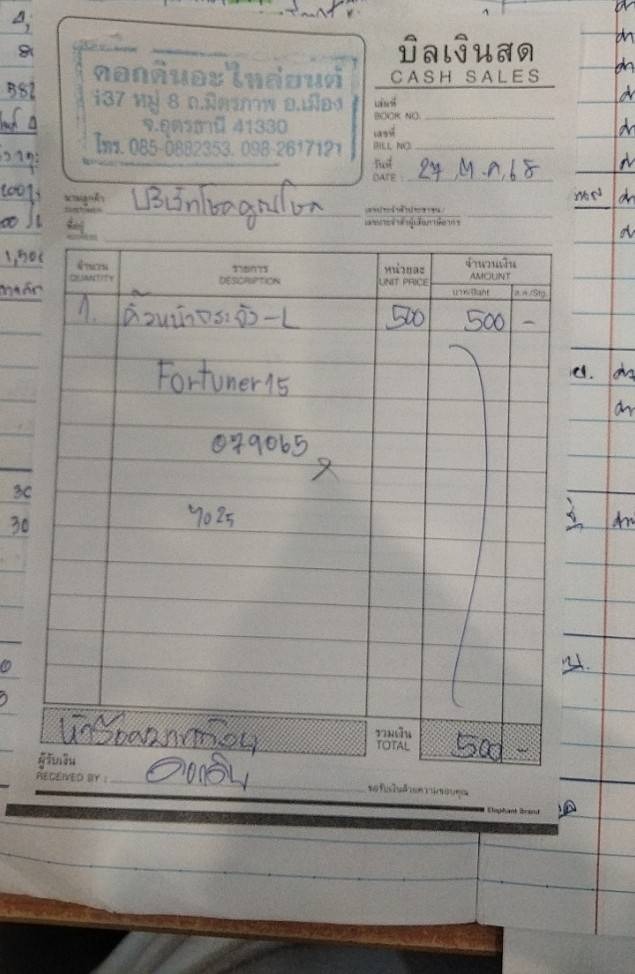 บิลเงินสด
CASH SALES
ดอกดินอะไหล่ยนต์
137 หมู่ 8 ถ.มิตรภาพ อ.เมือง
จ.อุดรธานี 41330
โทร. 085-0882353. 098-2617121
เล่มที่
BOOK NO.
เลขที่
BILL NO.
วันที่
DATE : 27 ต.ค. 68
นามลูกค้า
CUSTOMER บริษัทโชคคูณโชค
ที่อยู่
ADDRESS
เลขประจำตัวประชาชน/
เลขประจำตัวผู้เสียภาษีอากร
จำนวน รายการ หน่วยละ จำนวนเงิน
QUANTITY DESCRIPTION UNIT PRICE AMOUNT
บาท/Baht ส.ต./Stg.
1. คิ้วหน้ากระจัง-L 500 500 -
Fortuner15
079065
7025
ห้าร้อยบาทถ้วน
รวมเงิน
TOTAL 500 -
ผู้รับเงิน
RECEIVED BY : ดอกดิน
ขอรับเงินด้วยความขอบคุณ
Elephant Brand